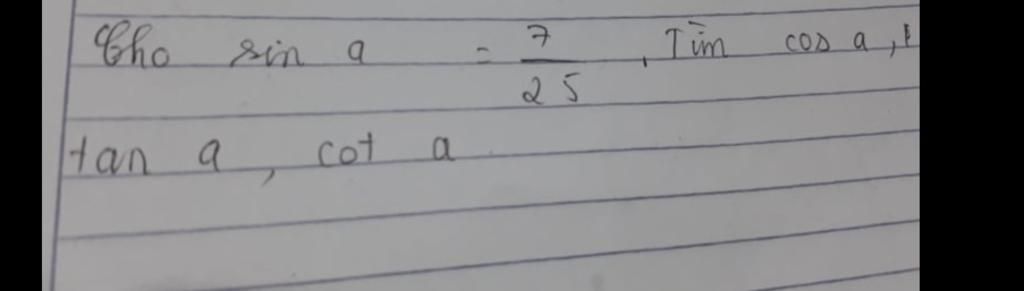 Cho sin a = 7/25, Tìm cos a,
tan a, cot a